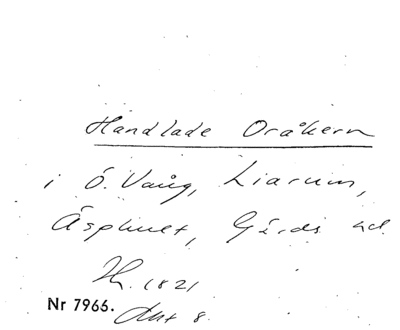 Handlade Oråkern
i Ö. Vång, Liarum,
Äsphult, Gärds hd.
1821
Nr 7966.
Akt 8.